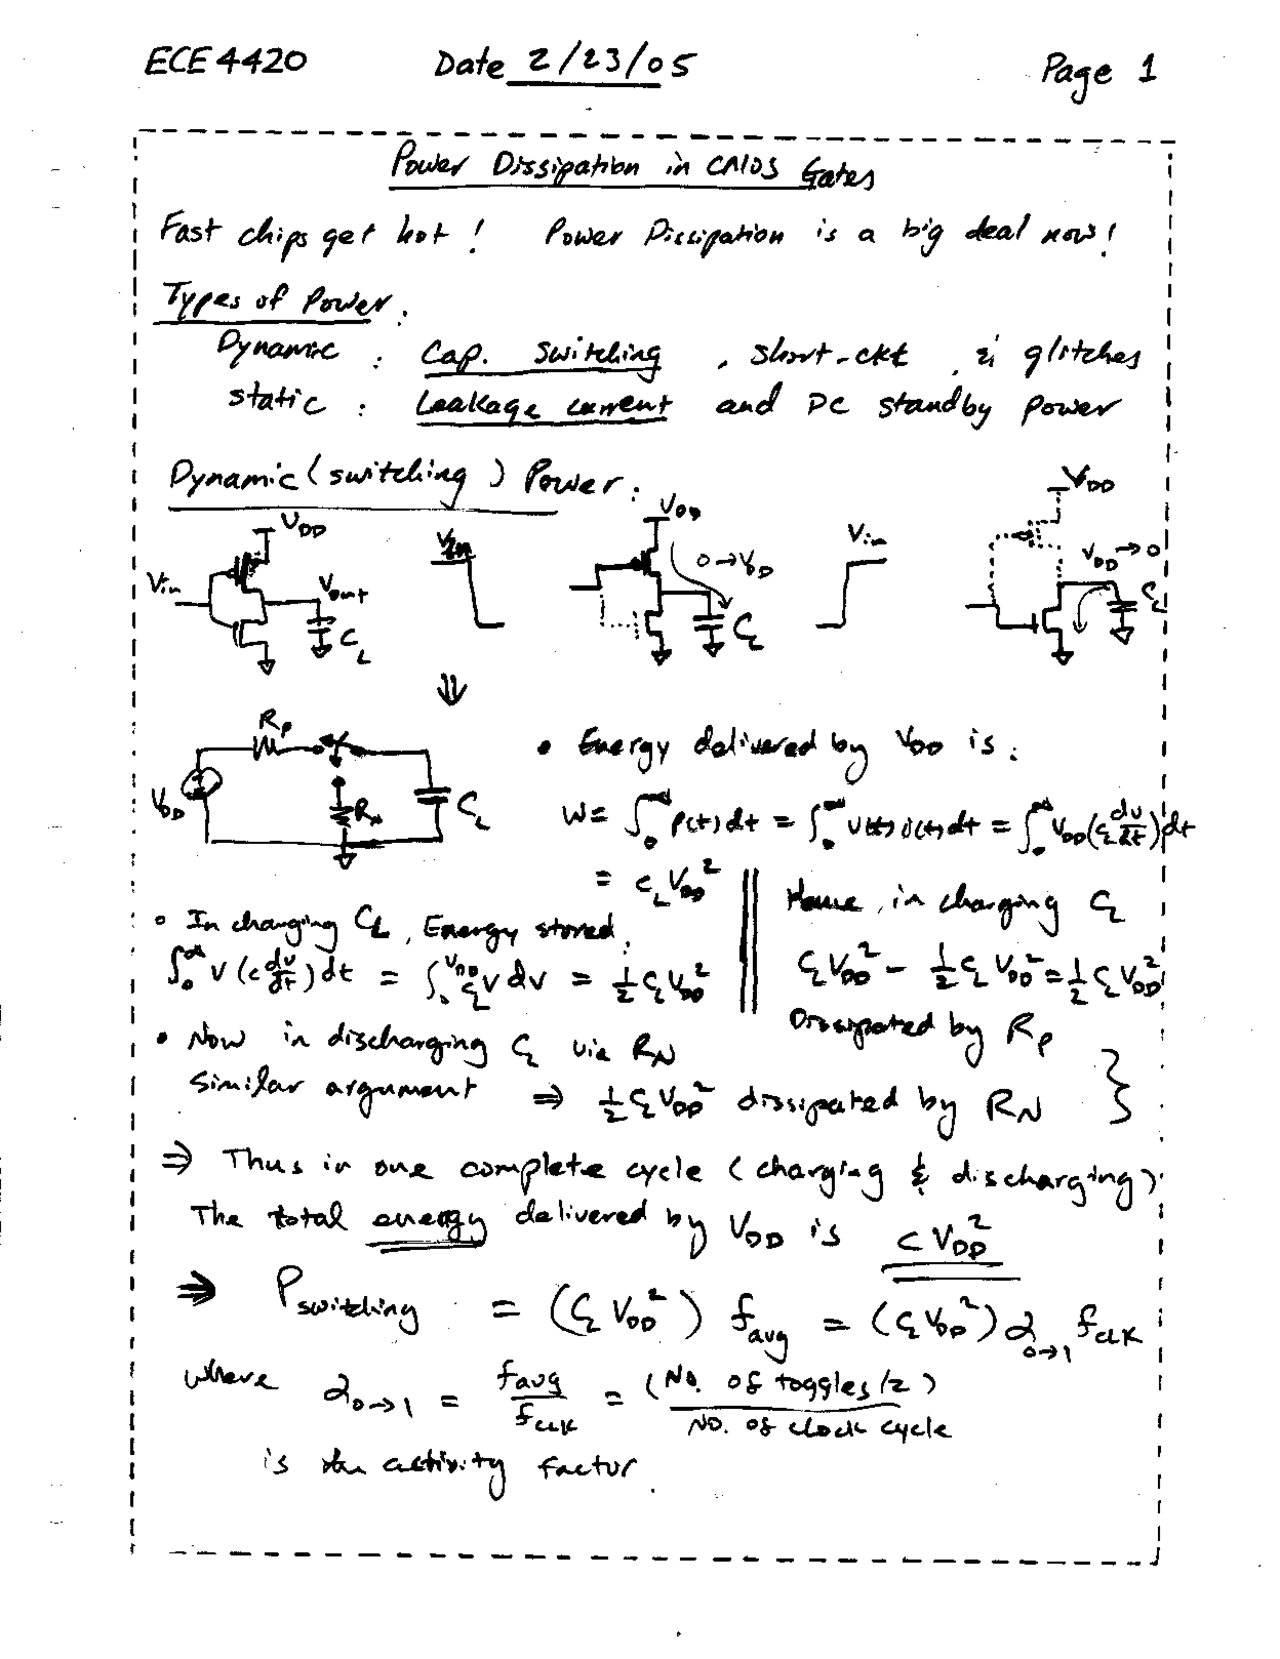 ECE 4420 Date 2/23/05 Page 1
Power Dissipation in CMOS Gates
Fast chips get hot! Power Dissipation is a big deal now!
Types of Power.
Dynamic : Cap. switching, short-ckt, & glitches
static : Leakage current and DC standby power
Dynamic (switching) Power:
V_DD V_DD V_DD
Vin Vout C_L
Vin 0→V_DD C_L
Vin V_DD→0 C_L
R_P
V_DD R_N C_L
• Energy delivered by V_DD is:
W = ∫_0^∞ P(t) dt = ∫_0^∞ v(t) i(t) dt = ∫_0^∞ V_DD (C_L dv/dt) dt
= C_L V_DD^2
• In charging C_L, Energy stored.
∫_0^∞ V (C dv/dt) dt = ∫_0^{V_DD} C_L v dv = 1/2 C_L V_DD^2
Hence, in charging C_L
C_L V_DD^2 - 1/2 C_L V_DD^2 = 1/2 C_L V_DD^2
Dissipated by R_P
• Now in discharging C_L via R_N
Similar argument ⇒ 1/2 C_L V_DD^2 dissipated by R_N
⇒ Thus in one complete cycle (charging & discharging)
The total energy delivered by V_DD is C V_DD^2
⇒ P_switching = (C_L V_DD^2) f_avg = (C_L V_DD^2) α_0→1 f_CLK
where α_0→1 = f_avg / f_CLK = (No. of toggles/2) / No. of clock cycle
is the activity factor.